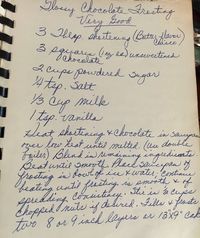 Glossy Chocolate Frosting
Very Good
3 Tbsp shortening (Butter Flavor Crisco)
3 squares (1 oz ea) unsweetened
chocolate
2 cups powdered sugar
1/4 tsp. salt
1/3 cup milk
1 tsp. vanilla
Heat shortening & chocolate in saucepan
over low heat until melted (use double
boiler) Blend in remaining ingredients
Beat until smooth. Place saucepan of
frosting in bowl of ice & water, continue
beating until frosting is smooth & of
spreading consistency. Stir in 1/2 cups
chopped nuts if desired. Fills & frosts
two 8 or 9 inch layers or 13x9" cake